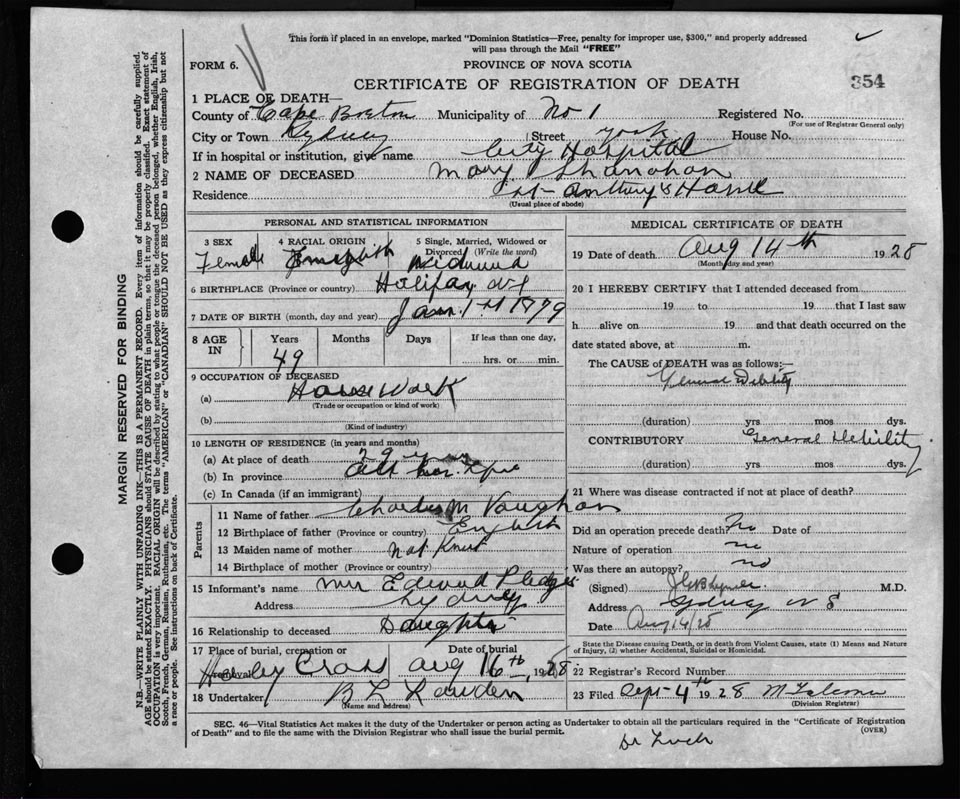 This form if placed in an envelope, marked "Dominion Statistics—Free, penalty for improper use, $300," and properly addressed
will pass through the Mail "FREE"
FORM 6.
PROVINCE OF NOVA SCOTIA
CERTIFICATE OF REGISTRATION OF DEATH
354
1 PLACE OF DEATH—
County of Cape Breton Municipality of No 1 Registered No.
(For use of Registrar General only)
City or Town Sydney Street York House No.
If in hospital or institution, give name City Hospital
2 NAME OF DECEASED Mary Shanahan
Residence St Anthony's Home
(Usual place of abode)
PERSONAL AND STATISTICAL INFORMATION
3 SEX 4 RACIAL ORIGIN 5 Single, Married, Widowed or
Divorced (Write the word)
Female English Widowed
6 BIRTHPLACE (Province or country) Halifax NS
7 DATE OF BIRTH (month, day and year) Jan. 1st 1879
8 AGE IN Years Months Days If less than one day,
49 hrs. or min.
9 OCCUPATION OF DECEASED
(a) House Work
(Trade or occupation or kind of work)
(b)
(Kind of industry)
10 LENGTH OF RESIDENCE (in years and months)
(a) At place of death 29
(b) In province All her life
(c) In Canada (if an immigrant)
Parents
11 Name of father Charles M Vaughan
12 Birthplace of father (Province or country) English
13 Maiden name of mother Not Known
14 Birthplace of mother (Province or country)
15 Informant's name Mrs Edward
Address Sydney
16 Relationship to deceased Daughter
17 Place of burial, cremation or removal Date of burial
Holy Cross Aug 16th, 1928
18 Undertaker B L
(Name and address)
MEDICAL CERTIFICATE OF DEATH
19 Date of death Aug 14th 1928
(Month, day and year)
20 I HEREBY CERTIFY that I attended deceased from
19 to 19 that I last saw
h alive on 19 and that death occurred on the
date stated above, at m.
The CAUSE of DEATH was as follows:—
General Debility
(duration) yrs mos dys.
CONTRIBUTORY General Debility
(duration) yrs mos dys.
21 Where was disease contracted if not at place of death?
Did an operation precede death? No Date of
Nature of operation no
Was there an autopsy? no
(Signed) M.D.
Address Sydney N S
Date Aug 14/28
State the Disease causing Death, or in death from Violent Causes, state (1) Means and Nature
of Injury, (2) whether Accidental, Suicidal or Homicidal.
22 Registrar's Record Number
23 Filed Sept 4th 1928
(Division Registrar)
SEC. 46—Vital Statistics Act makes it the duty of the Undertaker or person acting as Undertaker to obtain all the particulars required in the "Certificate of Registration
of Death" and to file the same with the Division Registrar who shall issue the burial permit.
(OVER)
MARGIN RESERVED FOR BINDING
N.B.—WRITE PLAINLY WITH UNFADING INK—THIS IS A PERMANENT RECORD. Every item of information should be carefully supplied.
AGE should be stated EXACTLY. PHYSICIANS should STATE CAUSE OF DEATH in plain terms, so that it may be properly classified. Exact statement of
OCCUPATION is very important. RACIAL ORIGIN will be described by stating to what people or tongue the deceased person belonged, whether English, Irish,
Scotch, French, German, Russian, Ruthenian, etc. The terms "AMERICAN" or "CANADIAN" SHOULD NOT BE USED as they express citizenship but not
a race or people. See instructions on back of Certificate.